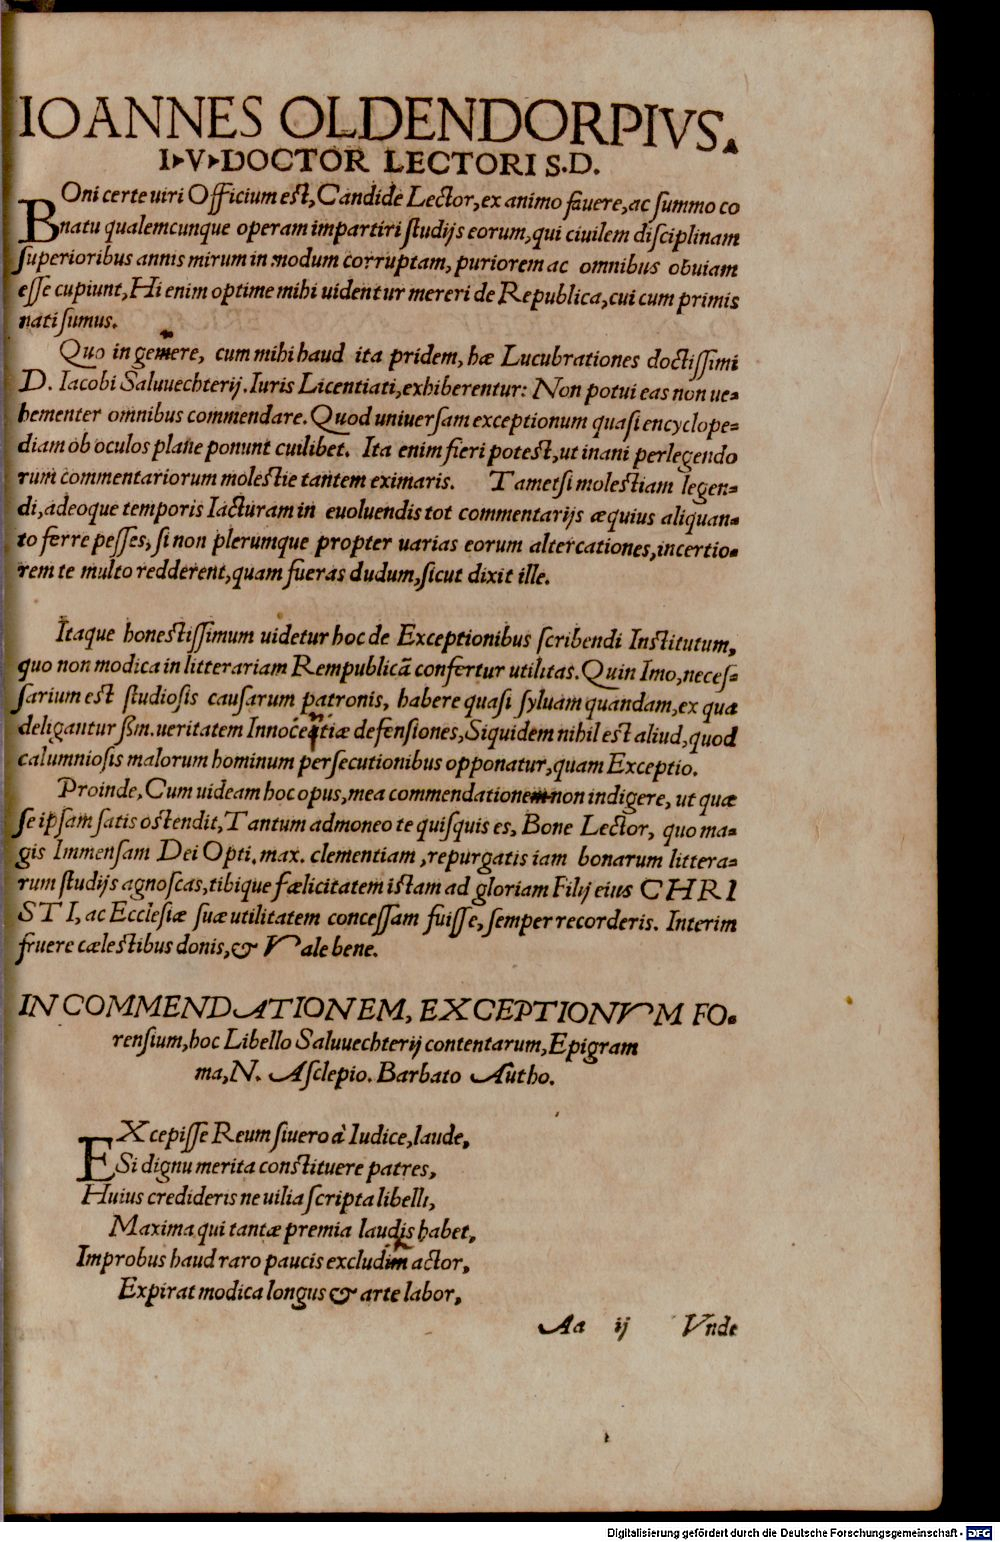 IOANNES OLDENDORPIVS.
I▸V▸DOCTOR LECTORI S.D.
BOni certe uiri Officium est, Candide Lector, ex animo fauere, ac summo co
natu qualemcunque operam impartiri studijs eorum, qui ciuilem disciplinam
superioribus annis mirum in modum corruptam, puriorem ac omnibus obuiam
esse cupiunt, Hi enim optime mihi uidentur mereri de Republica, cui cum primis
nati sumus.
Quo in gemere, cum mihi haud ita pridem, hæ Lucubrationes doctissimi
D. Iacobi Saluuechterij. Iuris Licentiati, exhiberentur: Non potui eas non ue=
hementer omnibus commendare. Quod uniuersam exceptionum quasi encyclope=
diam ob oculos plane ponunt cuilibet. Ita enim fieri potest, ut inani perlegendo
rum commentariorum molestie tantem eximaris. Tametsi molestiam legen=
di, adeoque temporis Iacturam in euoluendis tot commentarijs æquius aliquan=
to ferre pesses, si non plerumque propter uarias eorum altercationes, incertio=
rem te multo redderent, quam fueras dudum, sicut dixit ille.
Itaque honestissimum uidetur hoc de Exceptionibus scribendi Institutum,
quo non modica in litterariam Rempublicā confertur utilitas. Quin Imo, neces=
sarium est studiosis causarum patronis, habere quasi syluam quandam, ex qua
deligantur ßm. ueritatem Innocētiæ defensiones, Siquidem nihil est aliud, quod
calumniosis malorum hominum persecutionibus opponatur, quam Exceptio.
Proinde, Cum uideam hoc opus, mea commendationem non indigere, ut quæ
se ipsam satis ostendit, Tantum admoneo te quisquis es, Bone Lector, quo ma=
gis Immensam Dei Opti. max. clementiam, repurgatis iam bonarum littera=
rum studijs agnoscas, tibique fælicitatem istam ad gloriam Filij eius CHRI
STI, ac Ecclesiæ suæ utilitatem concessam fuisse, semper recorderis. Interim
fruere cælestibus donis, & Vale bene.
IN COMMENDATIONEM, EXCEPTIONVM FO=
rensium, hoc Libello Saluuechterij contentarum, Epigram
ma, N. Asclepio. Barbato Autho.
EXcepisse Reum si uero à Iudice, laude,
Si dignu merita constituere patres,
Huius credideris ne uilia scripta libelli,
Maxima qui tantæ premia laudis habet,
Improbus haud raro paucis excludim actor,
Expirat modica longus & arte labor,
Aa ij Vnde
Digitalisierung gefördert durch die Deutsche Forschungsgemeinschaft - DFG